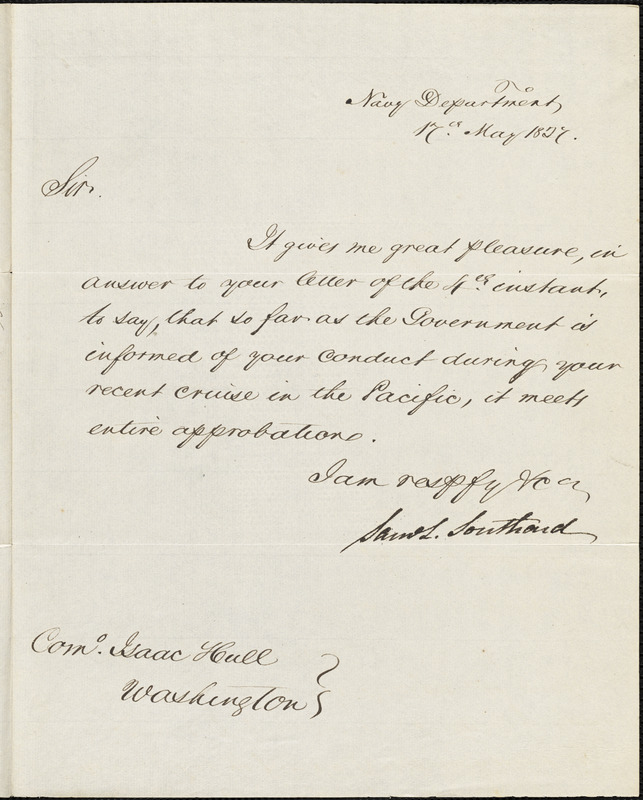 Navy Department,
17th May 1827.
Sir.
It gives me great pleasure, in
answer to your letter of the 4th instant,
to say, that so far as the Government is
informed of your conduct during your
recent cruise in the Pacific, it meets
entire approbation.
I am respfy &c a
Saml. L. Southard
Como. Isaac Hull
Washington }